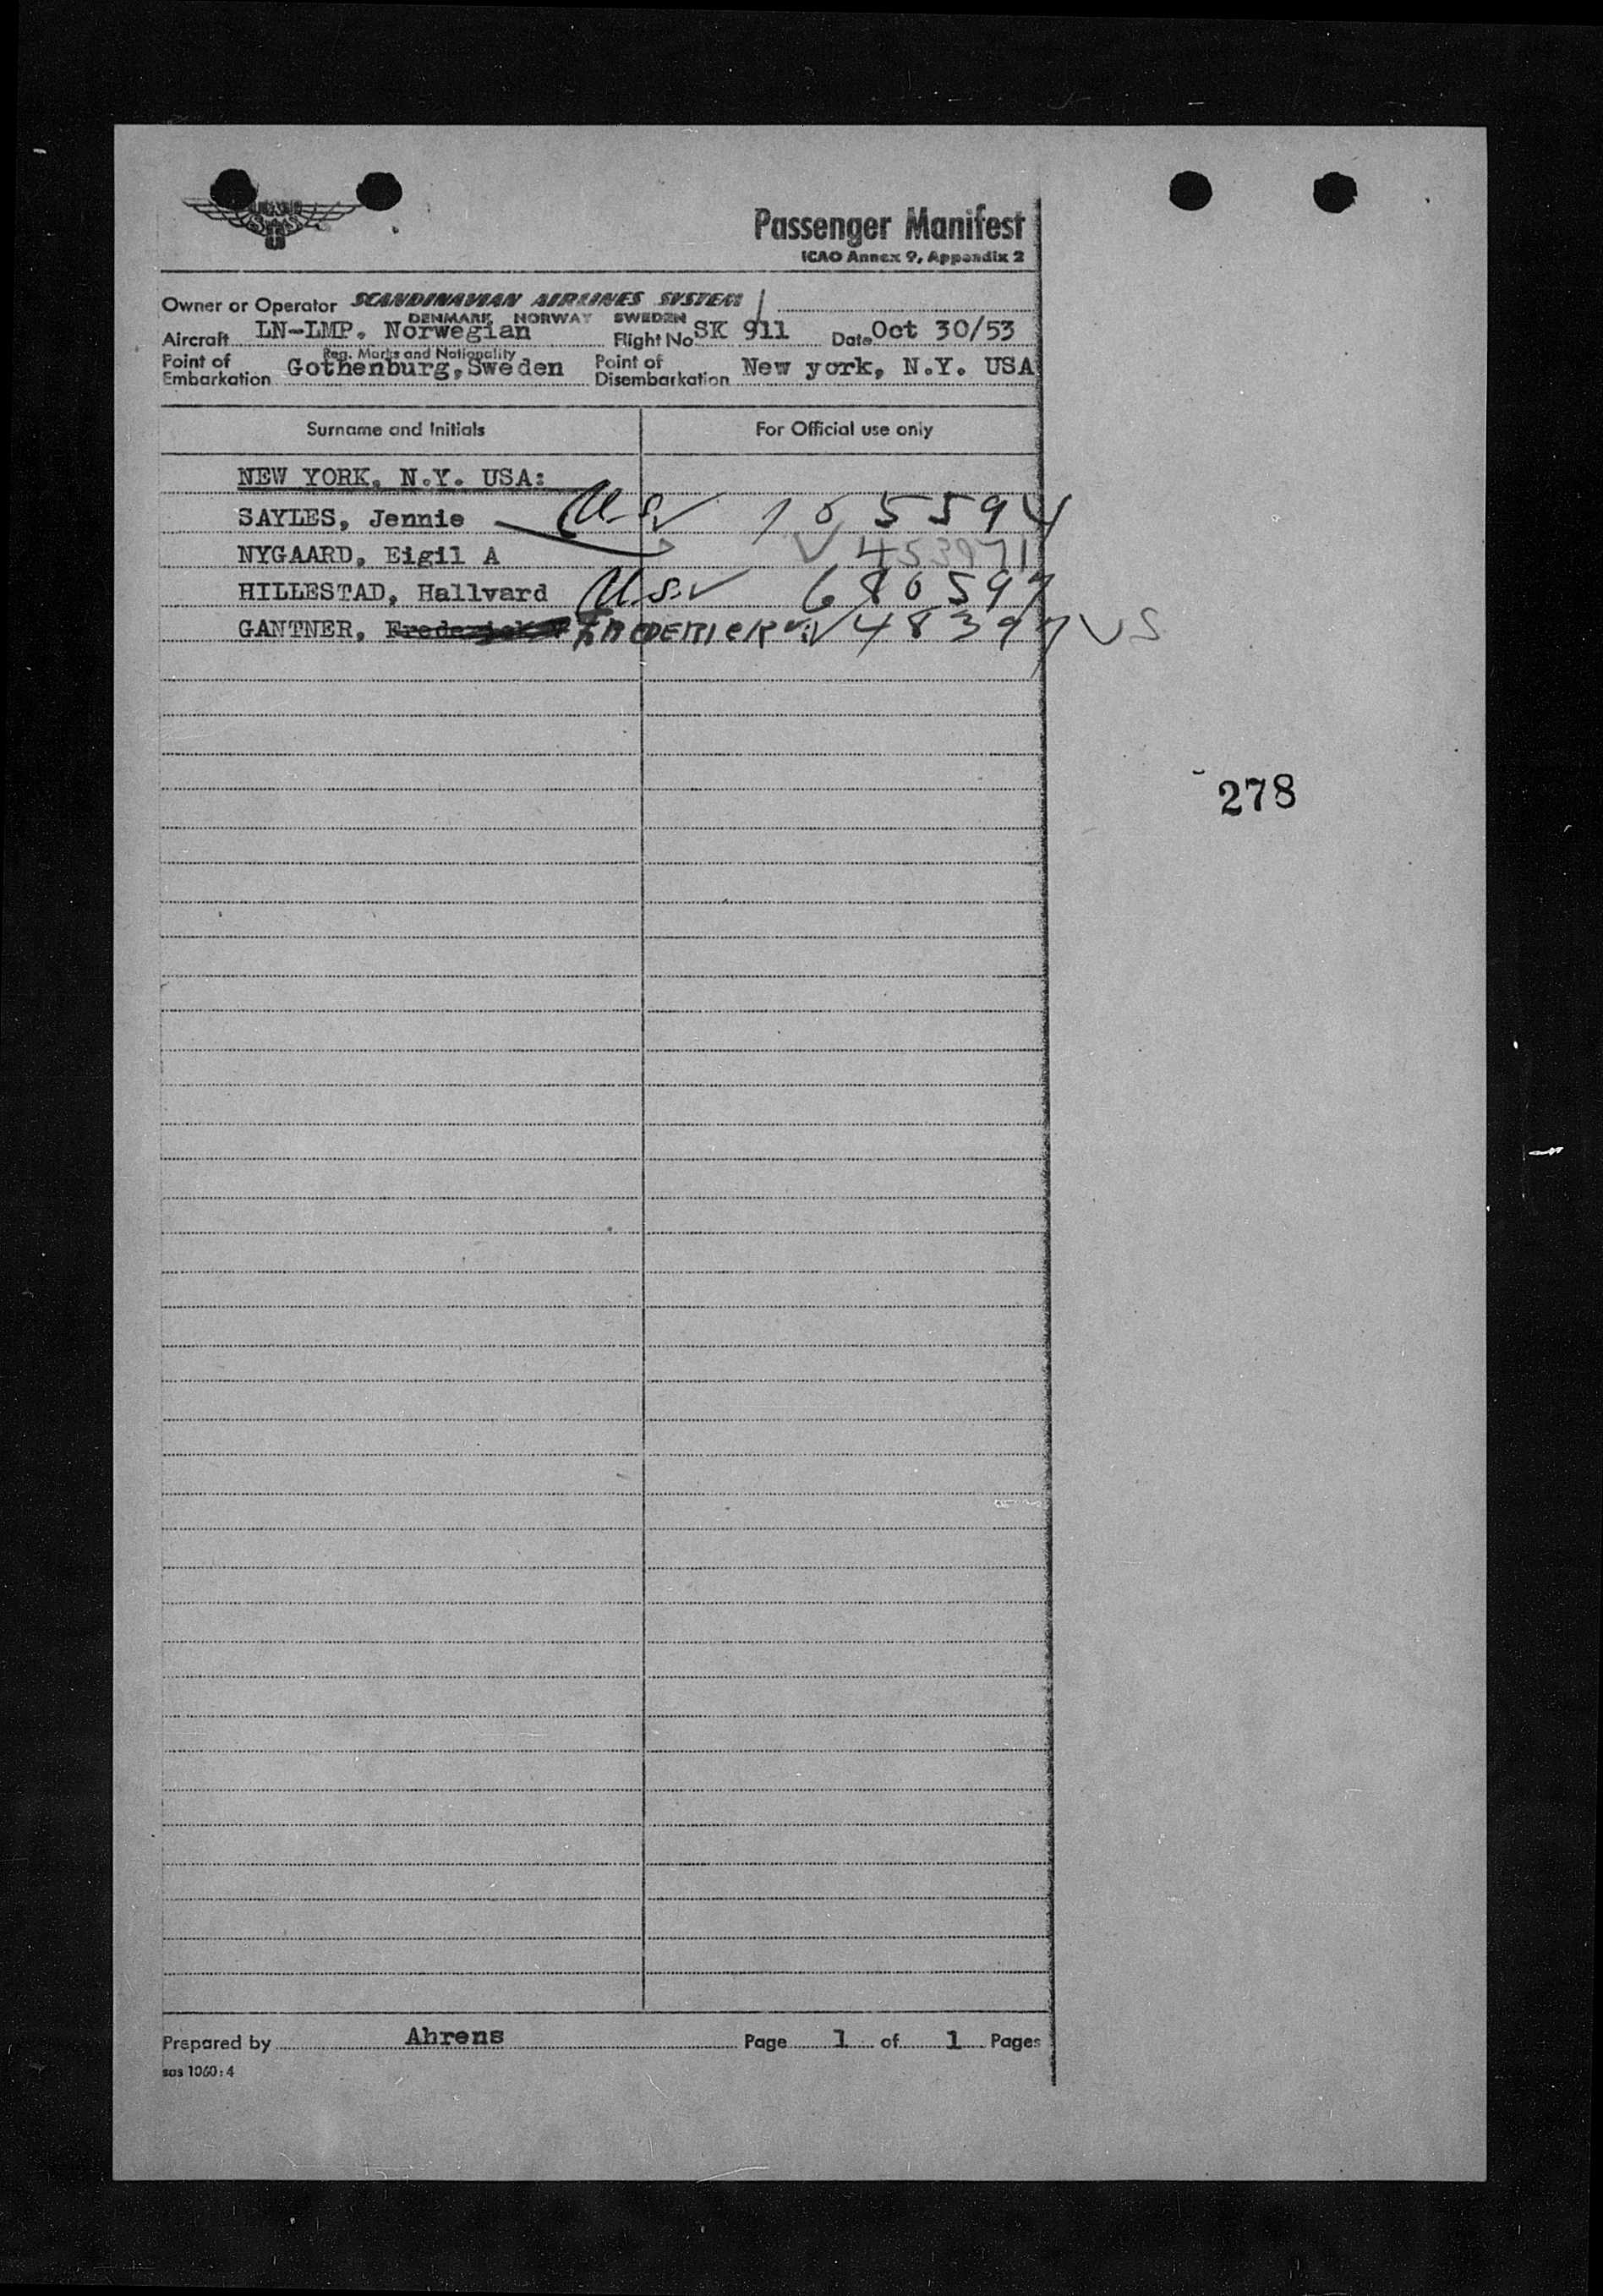 SAS
Passenger Manifest
ICAO Annex 9, Appendix 2
Owner or Operator SCANDINAVIAN AIRLINES SYSTEM /
DENMARK NORWAY SWEDEN
Aircraft LN-LMP. Norwegian Flight No SK 911 Date Oct 30/53
Reg. Marks and Nationality
Point of Embarkation Gothenburg, Sweden Point of Disembarkation New york, N.Y. USA
Surname and Initials For Official use only
NEW YORK, N.Y. USA:
SAYLES, Jennie U.S. 105594
NYGAARD, Eigil A 453971
HILLESTAD, Hallvard U.S. 680597
GANTNER, Frederick FREDERICK 48397 US
278
Prepared by Ahrens Page 1 of 1 Pages
sas 1060:4